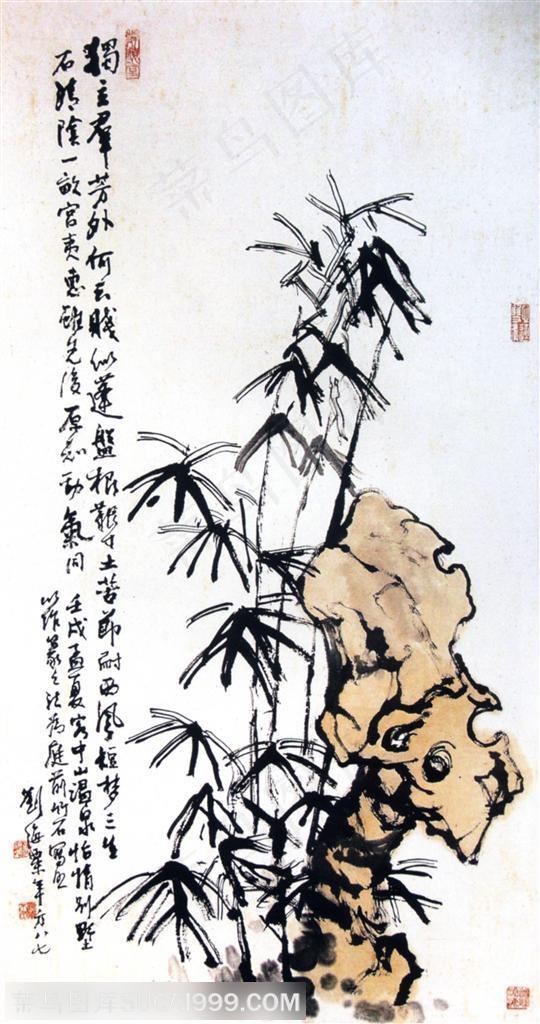 獨立群芳外何云賤似蓬盤根艱寸土苦節耐西風短梦三生
石清陰一畝宮夷惠雖先後原知勁氣同
壬戌孟夏客中山温泉怡情別墅
以作篆之法為庭前竹石寫照
劉海粟年方八七
菜鸟图库
菜鸟图库SUCAI999.COM